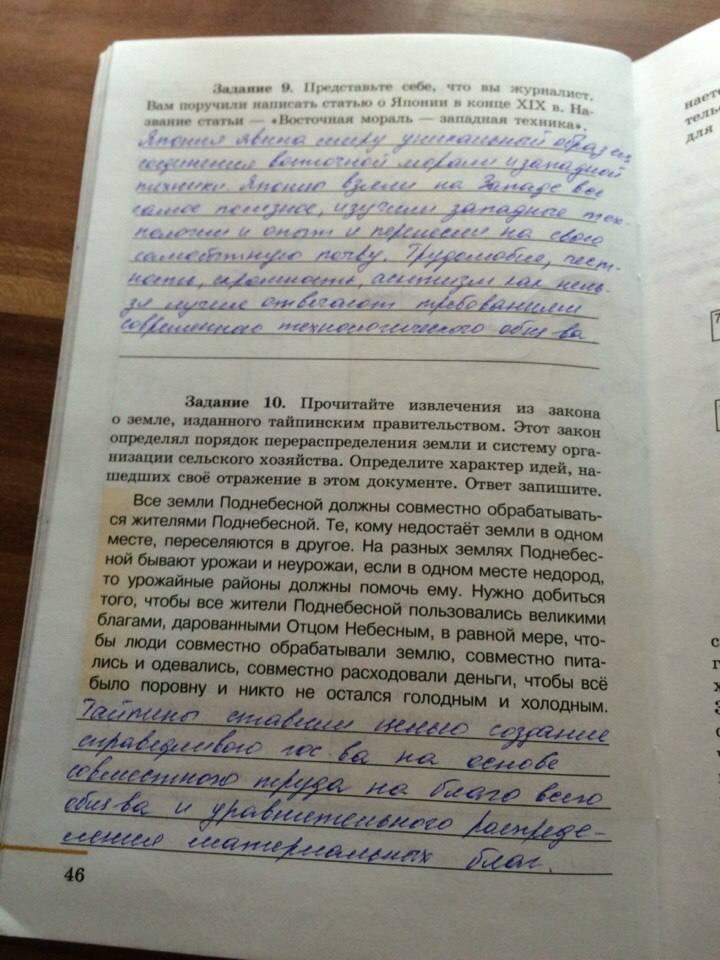 Задание 9. Представьте себе, что вы журналист.
Вам поручили написать статью о Японии в конце XIX в. На-
звание статьи — «Восточная мораль — западная техника».
Япония явила миру уникальный образец
соединения восточной морали и западной
техники. Японцы взяли на Западе все
самое полезное, изучили западные тех-
нологии и опыт и перенесли на свою
самобытную почву. Трудолюбие, чест-
ность, скромность, аскетизм как нель-
зя лучше отвечают требованиям
современного технологического общ-ва
Задание 10. Прочитайте извлечения из закона
о земле, изданного тайпинским правительством. Этот закон
определял порядок перераспределения земли и систему орга-
низации сельского хозяйства. Определите характер идей, на-
шедших своё отражение в этом документе. Ответ запишите.
Все земли Поднебесной должны совместно обрабатывать-
ся жителями Поднебесной. Те, кому недостаёт земли в одном
месте, переселяются в другое. На разных землях Поднебес-
ной бывают урожаи и неурожаи, если в одном месте недород,
то урожайные районы должны помочь ему. Нужно добиться
того, чтобы все жители Поднебесной пользовались великими
благами, дарованными Отцом Небесным, в равной мере, что-
бы люди совместно обрабатывали землю, совместно пита-
лись и одевались, совместно расходовали деньги, чтобы всё
было поровну и никто не остался голодным и холодным.
Тайпины ставили целью создание
справедливого гос-ва на основе
совместного труда на благо всего
общ-ва и уравнительного распреде-
ления материальных благ.
46
наетс
тельс
для